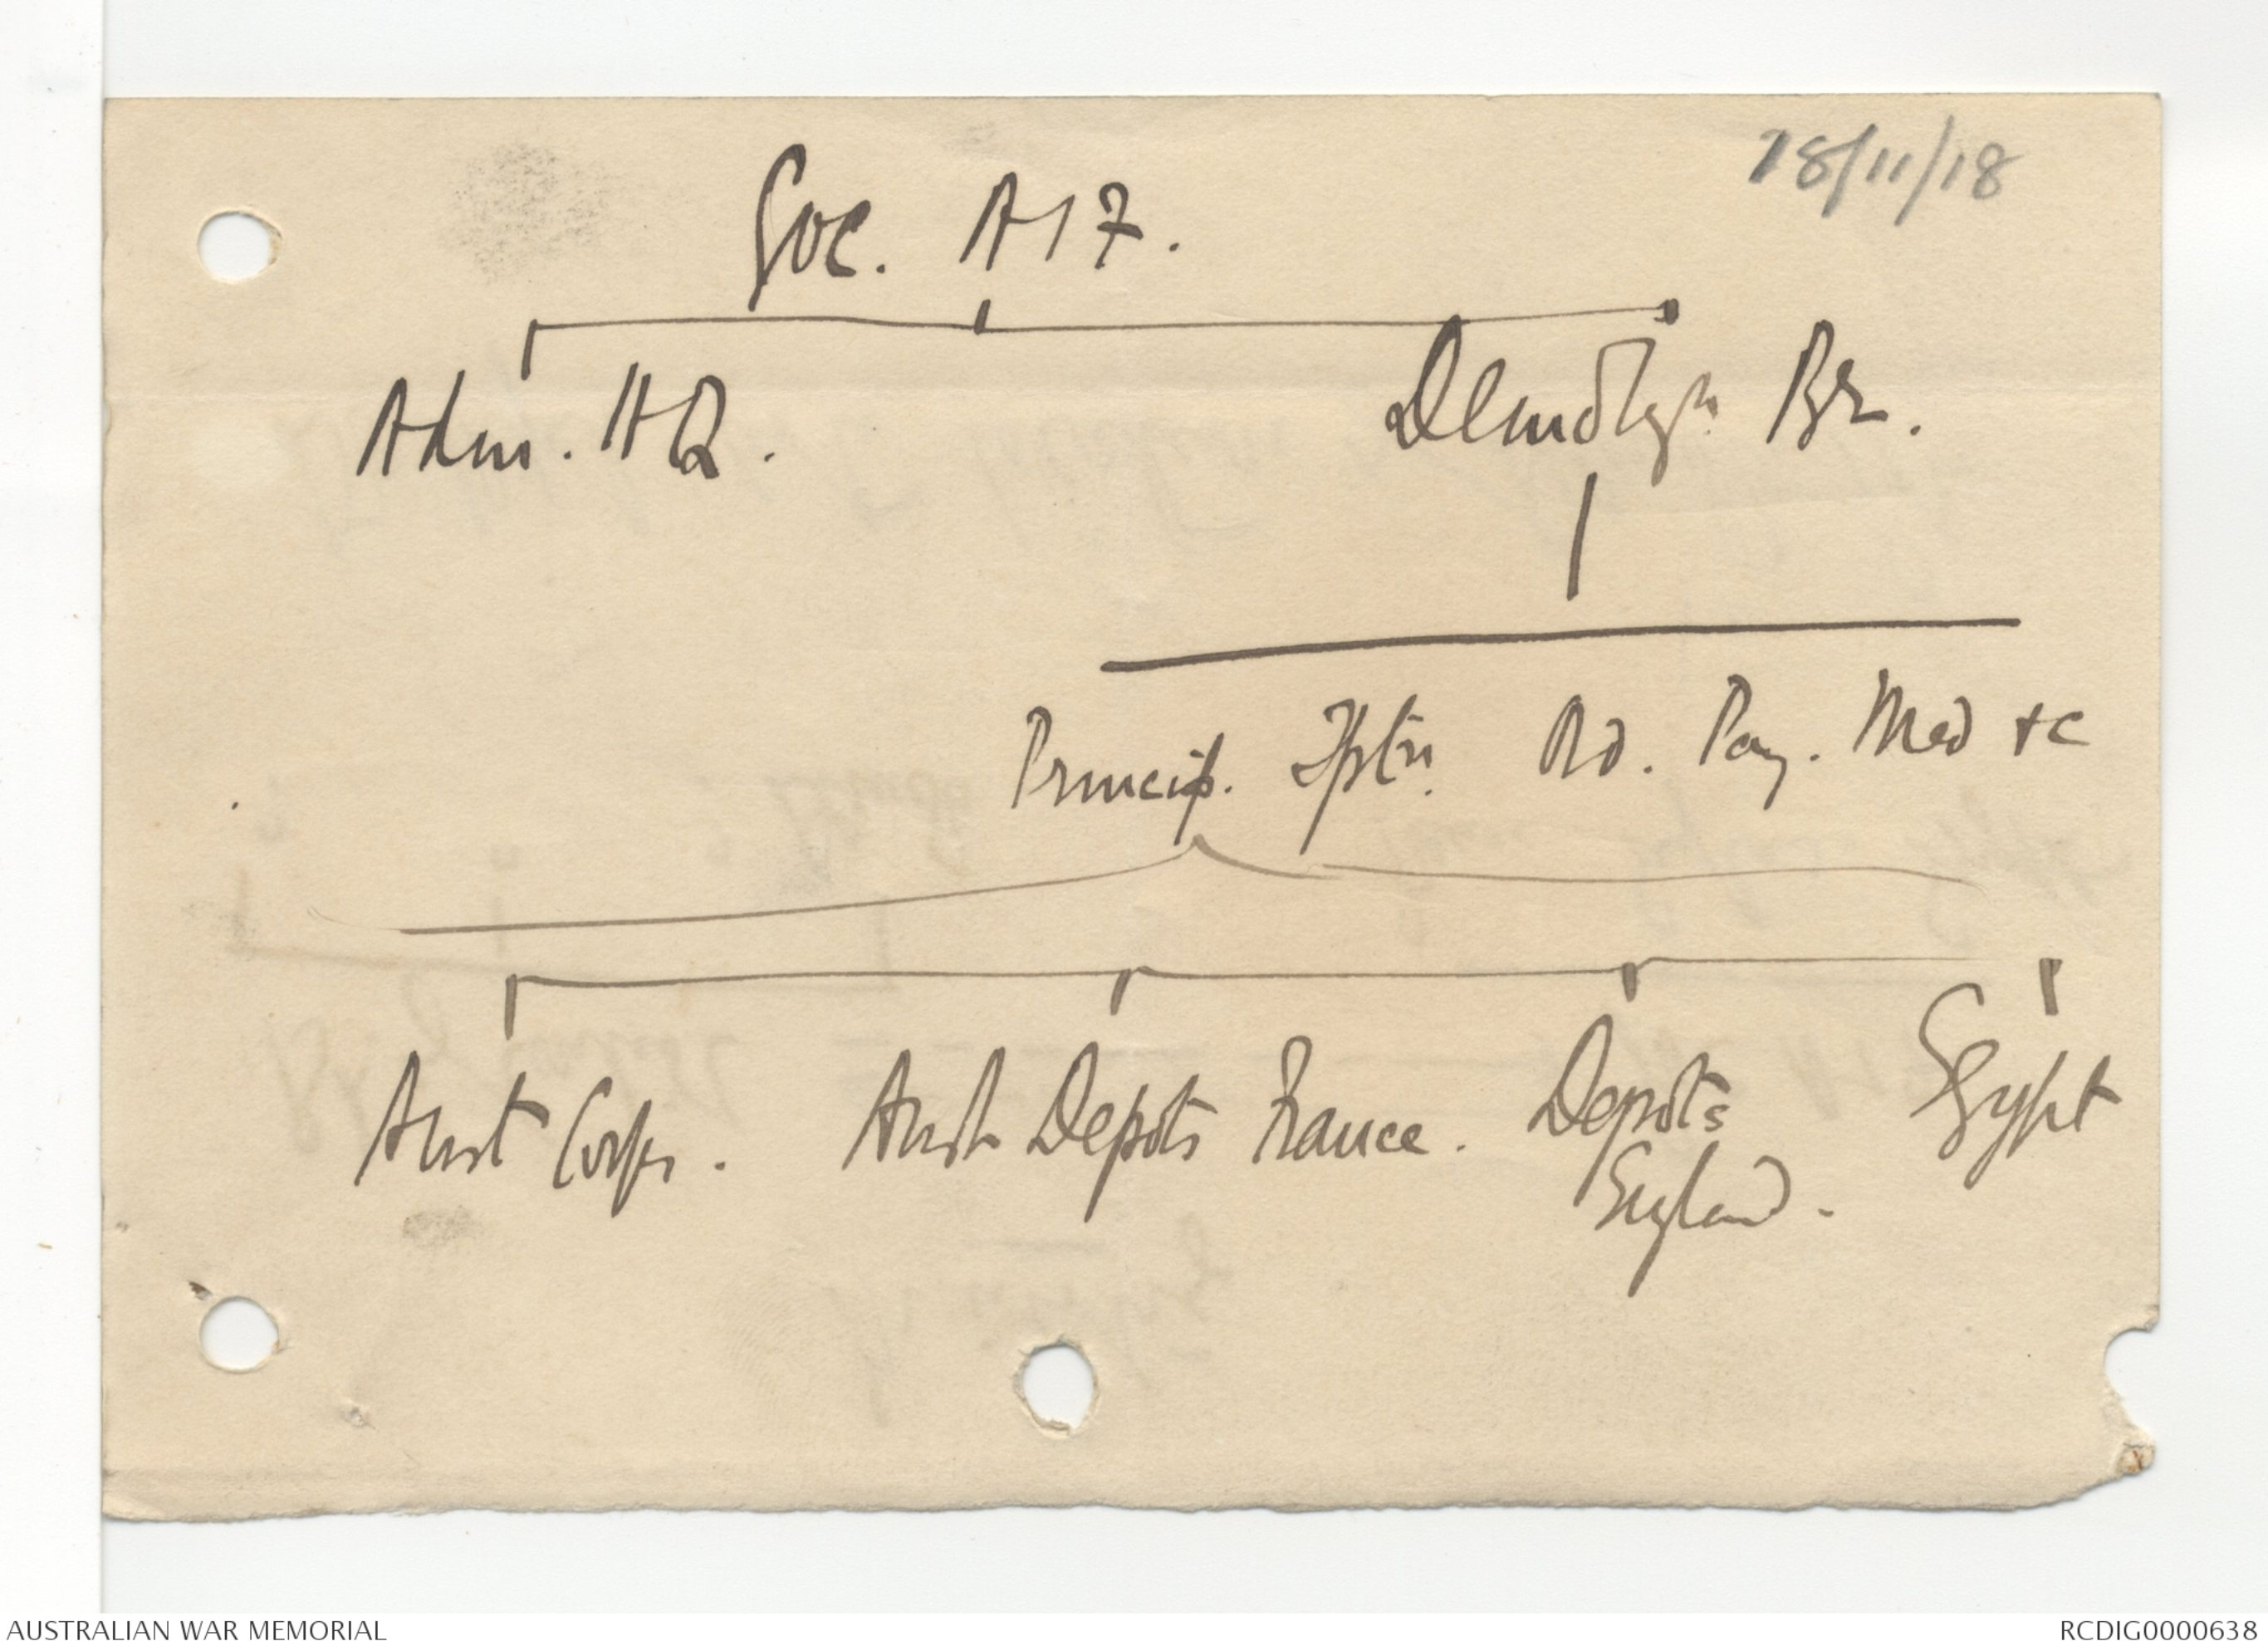 18/11/18
Goc. AIF.
Adm. HQ. Demobzn Br.
Princip. Tptn. Od. Pay. Med +c
Aust Corps. Aust Depots France. Depots England. Egypt
AUSTRALIAN WAR MEMORIAL RCDIG0000638